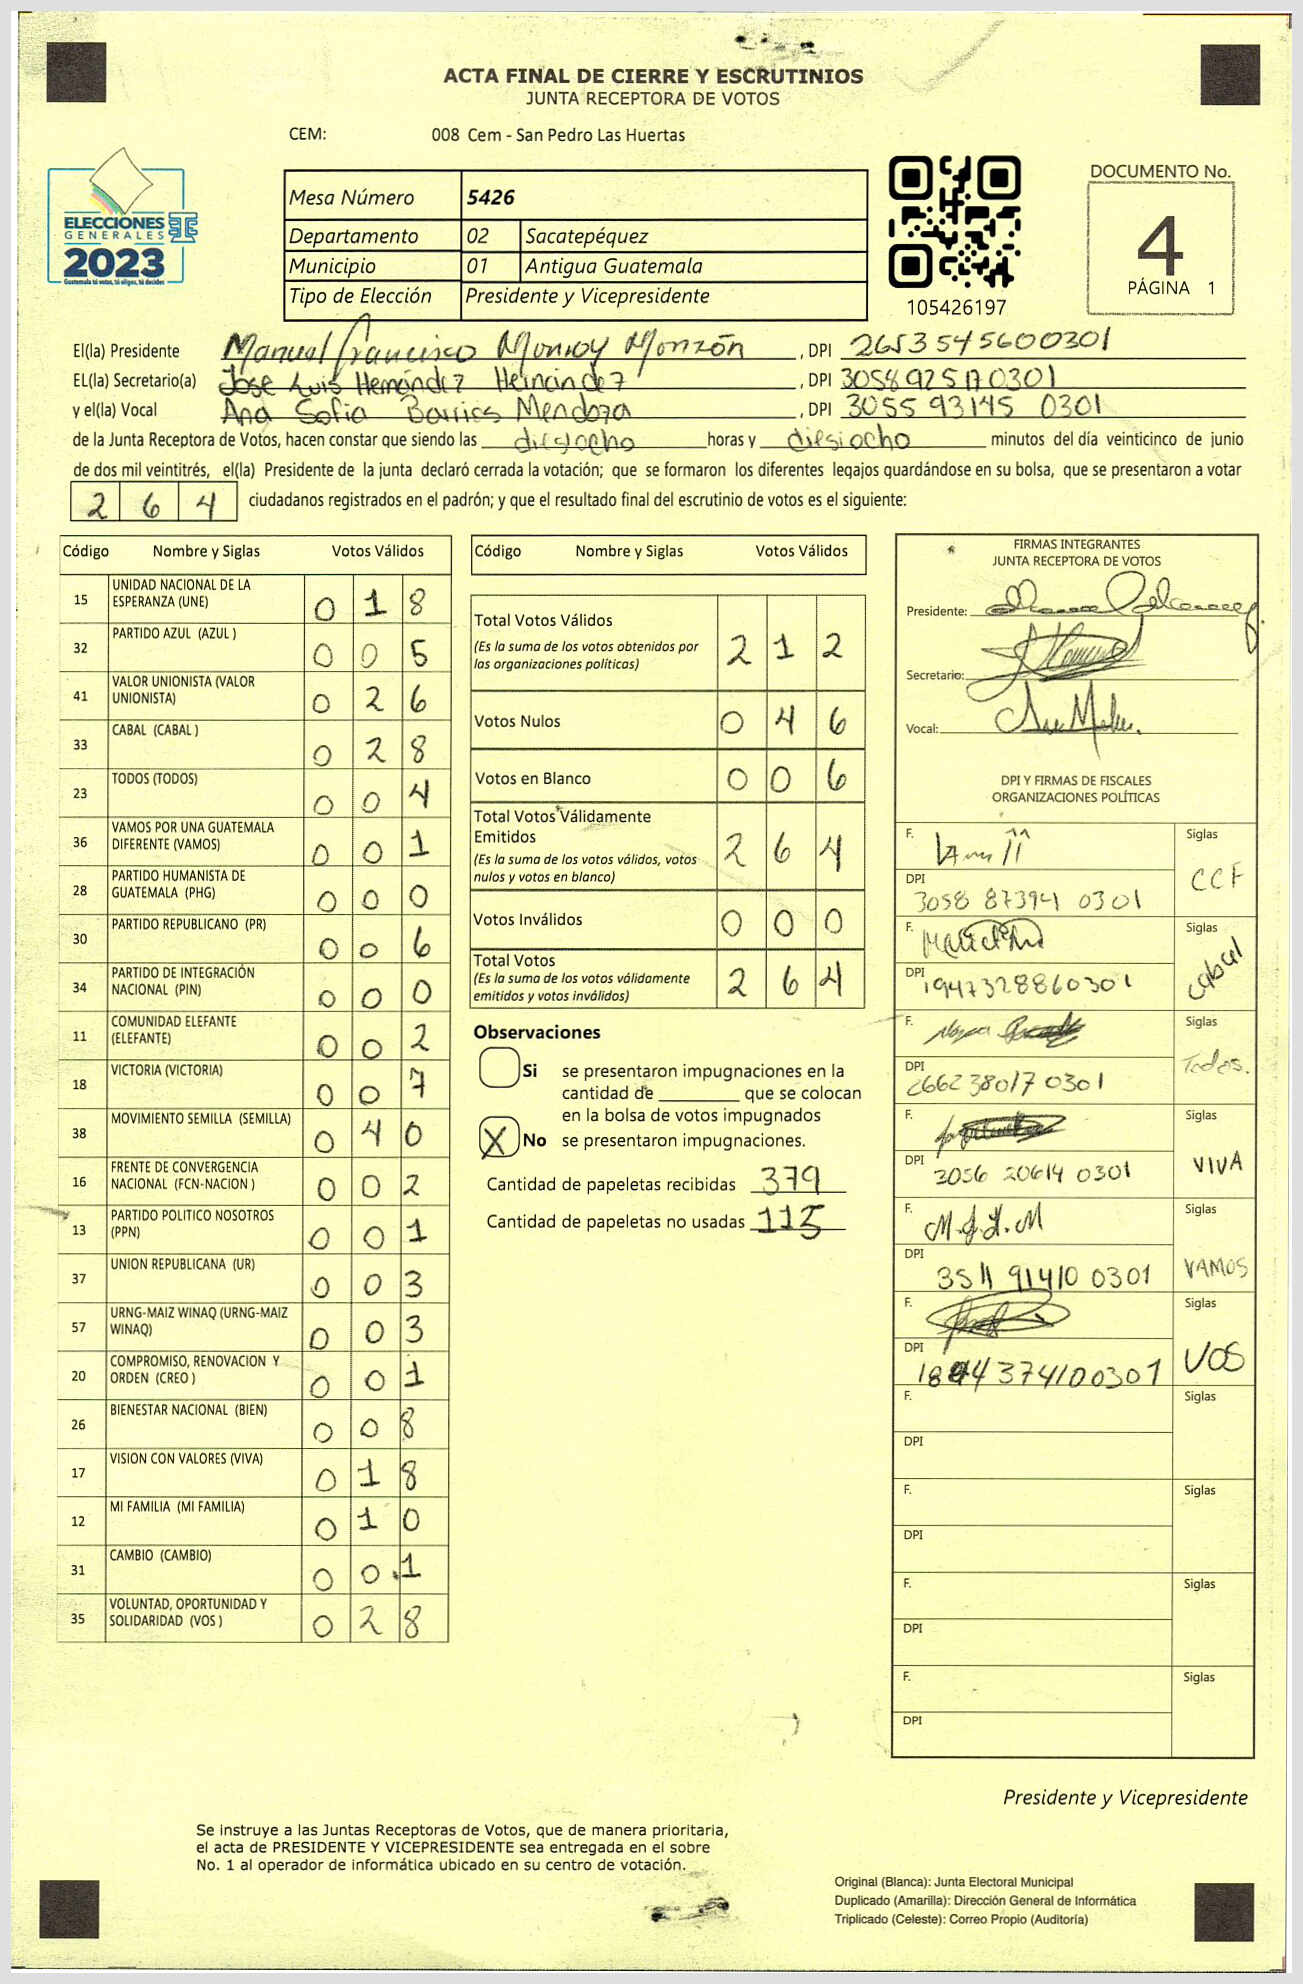 ACTA FINAL DE CIERRE Y ESCRUTINIOS
JUNTA RECEPTORA DE VOTOS
CEM: 008 Cem - San Pedro Las Huertas
ELECCIONES
GENERALES
2023
Guatemala tú votas, tú eliges, tú decides
TSE
Mesa Número 5426
Departamento 02 Sacatepéquez
Municipio 01 Antigua Guatemala
Tipo de Elección Presidente y Vicepresidente
105426197
DOCUMENTO No.
4
PÁGINA 1
El(la) Presidente Manuel Francisco Monroy Monzón , DPI 2653545600301
EL(la) Secretario(a) Jose Luis Hernández Hernández , DPI
y el(la) Vocal Ana Sofia Barrios Mendoza , DPI 3055 93145 0301
de la Junta Receptora de Votos, hacen constar que siendo las diesiocho horas y diesiocho minutos del día veinticinco de junio
de dos mil veintitrés, el(la) Presidente de la junta declaró cerrada la votación; que se formaron los diferentes legajos guardándose en su bolsa, que se presentaron a votar
2 6 4 ciudadanos registrados en el padrón; y que el resultado final del escrutinio de votos es el siguiente:
Código Nombre y Siglas Votos Válidos
15 UNIDAD NACIONAL DE LA ESPERANZA (UNE) 0 1 8
32 PARTIDO AZUL (AZUL ) 0 0 5
41 VALOR UNIONISTA (VALOR UNIONISTA) 0 2 6
33 CABAL (CABAL ) 0 2 8
23 TODOS (TODOS) 0 0 4
36 VAMOS POR UNA GUATEMALA DIFERENTE (VAMOS) 0 0 1
28 PARTIDO HUMANISTA DE GUATEMALA (PHG) 0 0 0
30 PARTIDO REPUBLICANO (PR) 0 0 6
34 PARTIDO DE INTEGRACIÓN NACIONAL (PIN) 0 0 0
11 COMUNIDAD ELEFANTE (ELEFANTE) 0 0 2
18 VICTORIA (VICTORIA) 0 0 7
38 MOVIMIENTO SEMILLA (SEMILLA) 0 4 0
16 FRENTE DE CONVERGENCIA NACIONAL (FCN-NACION ) 0 0 2
13 PARTIDO POLITICO NOSOTROS (PPN) 0 0 1
37 UNION REPUBLICANA (UR) 0 0 3
57 URNG-MAIZ WINAQ (URNG-MAIZ WINAQ) 0 0 3
20 COMPROMISO, RENOVACION Y ORDEN (CREO ) 0 0 1
26 BIENESTAR NACIONAL (BIEN) 0 0 8
17 VISION CON VALORES (VIVA) 0 1 8
12 MI FAMILIA (MI FAMILIA) 0 1 0
31 CAMBIO (CAMBIO) 0 0 1
35 VOLUNTAD, OPORTUNIDAD Y SOLIDARIDAD (VOS ) 0 2 8
Código Nombre y Siglas Votos Válidos
Total Votos Válidos 2 1 2
(Es la suma de los votos obtenidos por
las organizaciones políticas)
Votos Nulos 0 4 6
Votos en Blanco 0 0 6
Total Votos Válidamente
Emitidos 2 6 4
(Es la suma de los votos válidos, votos
nulos y votos en blanco)
Votos Inválidos 0 0 0
Total Votos 2 6 4
(Es la suma de los votos válidamente
emitidos y votos inválidos)
Observaciones
Si se presentaron impugnaciones en la
cantidad de ________ que se colocan
en la bolsa de votos impugnados
X No se presentaron impugnaciones.
Cantidad de papeletas recibidas 379
Cantidad de papeletas no usadas 115
FIRMAS INTEGRANTES
JUNTA RECEPTORA DE VOTOS
Presidente:
Secretario:
Vocal:
DPI Y FIRMAS DE FISCALES
ORGANIZACIONES POLÍTICAS
F. Siglas
CCF
DPI
3058 87394 0301
F. Siglas
Cabal
DPI
1947328860301
F. Siglas
Todos.
DPI
266238017 0301
F. Siglas
VIVA
DPI
3056 20614 0301
F. M.J.L.M Siglas
VAMOS
DPI
3511 91410 0301
F. Siglas
VOS
DPI
F. Siglas
DPI
F. Siglas
DPI
F. Siglas
DPI
F. Siglas
DPI
Presidente y Vicepresidente
Se instruye a las Juntas Receptoras de Votos, que de manera prioritaria,
el acta de PRESIDENTE Y VICEPRESIDENTE sea entregada en el sobre
No. 1 al operador de informática ubicado en su centro de votación.
Original (Blanca): Junta Electoral Municipal
Duplicado (Amarilla): Dirección General de Informática
Triplicado (Celeste): Correo Propio (Auditoría)